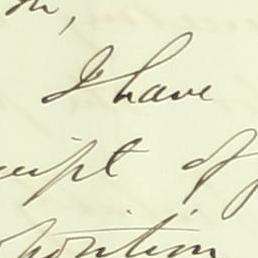 I have
ceipt of
position